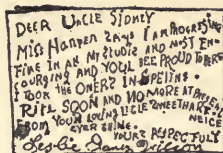 DEER UNCLE SIDNEY
MISS HANNEN ZAYS I AM PROGRESSING
FINE IN AR MY STUDIZ AND MOST EN
COURGING AND YOULL BEE PROUD TO HERE
I TOOK THE ONERZ IN SPELING.
RITE SOON AND NO MORE AT PRES
FROM YOUR LOVING LITLE
EVER SHINE. NEICE
YOURZ RESPECTFULY
Leslie Janes Wilson